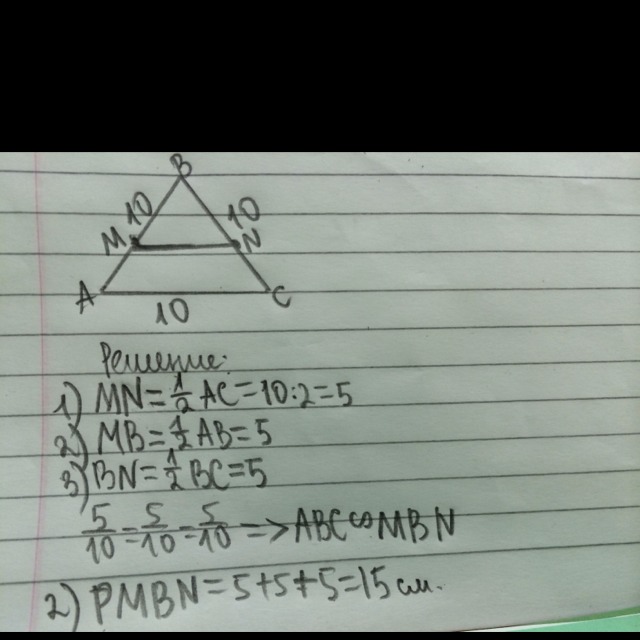 B
10 10
M N
A C
10
Решение:
1) MN=½AC=10:2=5
2) MB=½AB=5
3) BN=½BC=5
5/10=5/10=5/10 => ABC∞MBN
2) PMBN=5+5+5=15см.